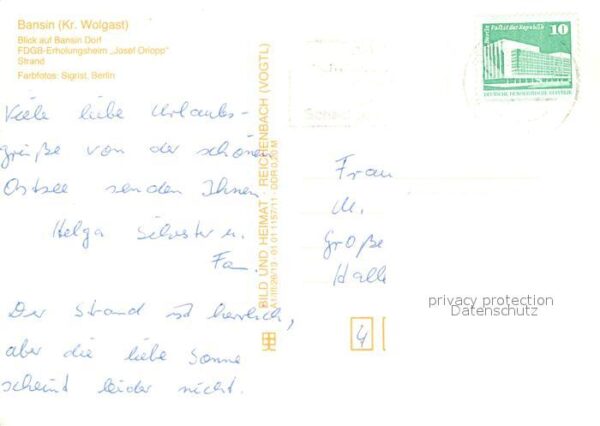 Bansin (Kr. Wolgast)
Blick auf Bansin Dorf
FDGB-Erholungsheim „Josef Orlopp"
Strand
Farbfotos: Sigrist, Berlin
Viele liebe Urlaubs-
grüße von der schönen
Ostsee senden Ihnen
Helga Silvester u.
Fam.
Der Strand ist herrlich,
aber die liebe Sonne
scheint leider nicht.
BILD UND HEIMAT · REICHENBACH (VOGTL)
A1/III/26/13 · 01 01 1157/11 · DDR 0,20 M
Berlin Palast der Republik
10
DEUTSCHE DEMOKRATISCHE REPUBLIK
Frau
M.
Große
Halle
4
privacy protection
Datenschutz